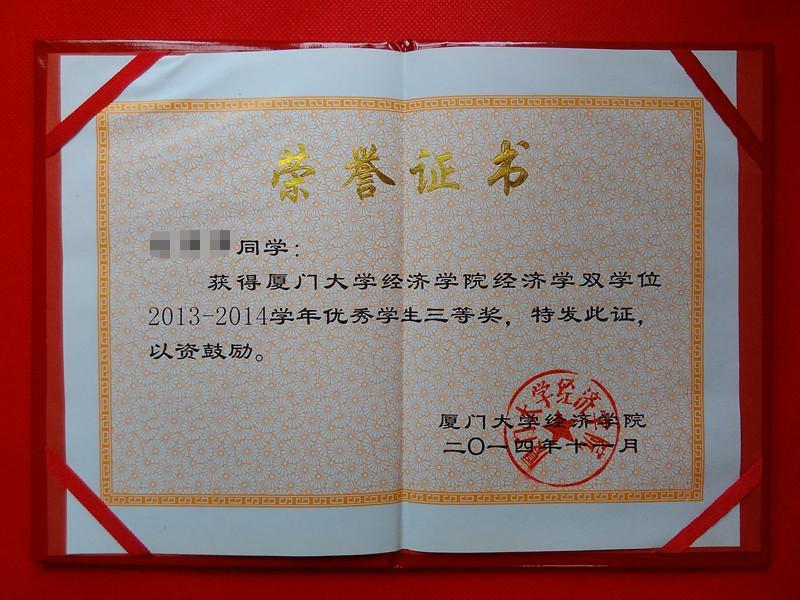 荣誉证书
同学：
获得厦门大学经济学院经济学双学位
2013-2014学年优秀学生三等奖，特发此证，
以资鼓励。
厦门大学经济学院
二〇一四年十一月
厦门大学经济学院